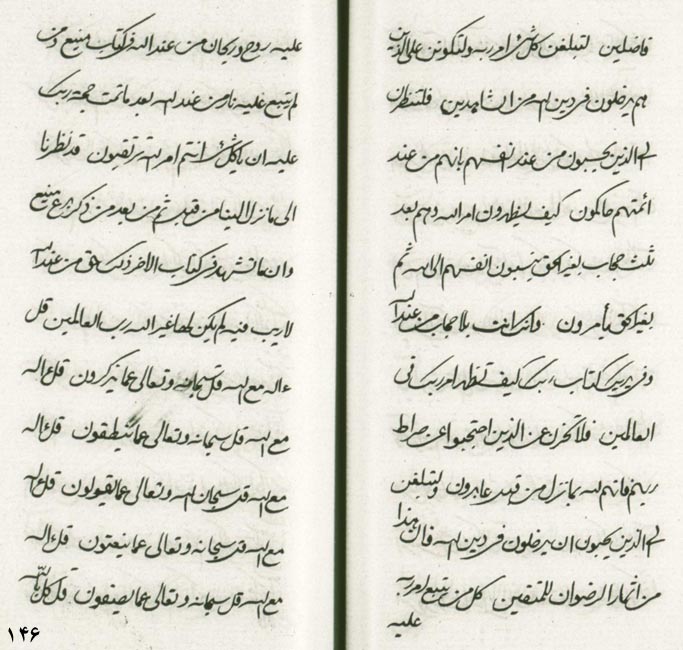 فاضلين لتبلغن كل شئ امر ربه ولتكونن على الذين
هم يدخلون في دين الله من الشاهدين فلتنظرن
الى الذين يحسبون من عند انفسهم بانهم من عند
ائمتهم حاكمون كيف يظهرون امر الله وهم بعد
ثلث حجاب بغير الحق ينسبون انفسهم الى الله ثم
بغير الحق يأمرون وانك انت بلا حجاب من عند الله
وفي يديك كتاب ربك كيف تظهر امر ربك في
العالمين فلا تحزن عن الذين احتجبوا عن صراط
ربهم فانهم لله بما نزل من قبل عابدون ولتبلغن
الى الذين يحبون ان يدخلون في دين الله قال هذا
من اثمار الرضوان للمتقين كل من يتبع امر ربه
عليه
عليه روح وريحان من عند الله في كتاب منيع ومن
لم يتبع عليه نار من عند الله بعد ما تمت حجة ربك
عليه ان يا كل شئ انتم امر الله ترتقبون قد نظرنا
الى ما نزل الينا من قبل ثم من بعد من ذكر بدع منيع
وان ما تشهد في كتاب الاخر ذلك حق من عند الله
لا ريب فيه لم يكن لها غير الله رب العالمين قل
ءاله مع الله قل سبحانه وتعالى عما يذكرون قل ءاله
مع الله قل سبحانه وتعالى عما ينطقون قل ءاله
مع الله قل سبحان الله وتعالى عما يقولون قل ءاله
مع الله قل سبحانه وتعالى عما ينعتون قل ءاله
مع الله قل سبحانه وتعالى عما يصنفون قل كل بالله
۱۴۶